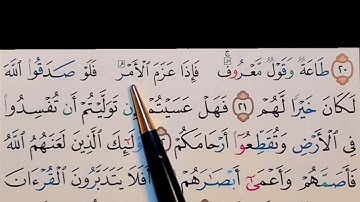 ٢٠ طَاعَةٌ وَقَوْلٌ مَّعْرُوفٌ ۚ فَإِذَا عَزَمَ ٱلْأَمْرُ فَلَوْ صَدَقُوا۟ ٱللَّهَ
لَكَانَ خَيْرًا لَّهُمْ ٢١ فَهَلْ عَسَيْتُمْ إِن تَوَلَّيْتُمْ أَن تُفْسِدُوا۟
فِى ٱلْأَرْضِ وَتُقَطِّعُوٓا۟ أَرْحَامَكُمْ أُو۟لَٰٓئِكَ ٱلَّذِينَ لَعَنَهُمُ ٱللَّهُ
فَأَصَمَّهُمْ وَأَعْمَىٰٓ أَبْصَٰرَهُمْ أَفَلَا يَتَدَبَّرُونَ ٱلْقُرْءَانَ